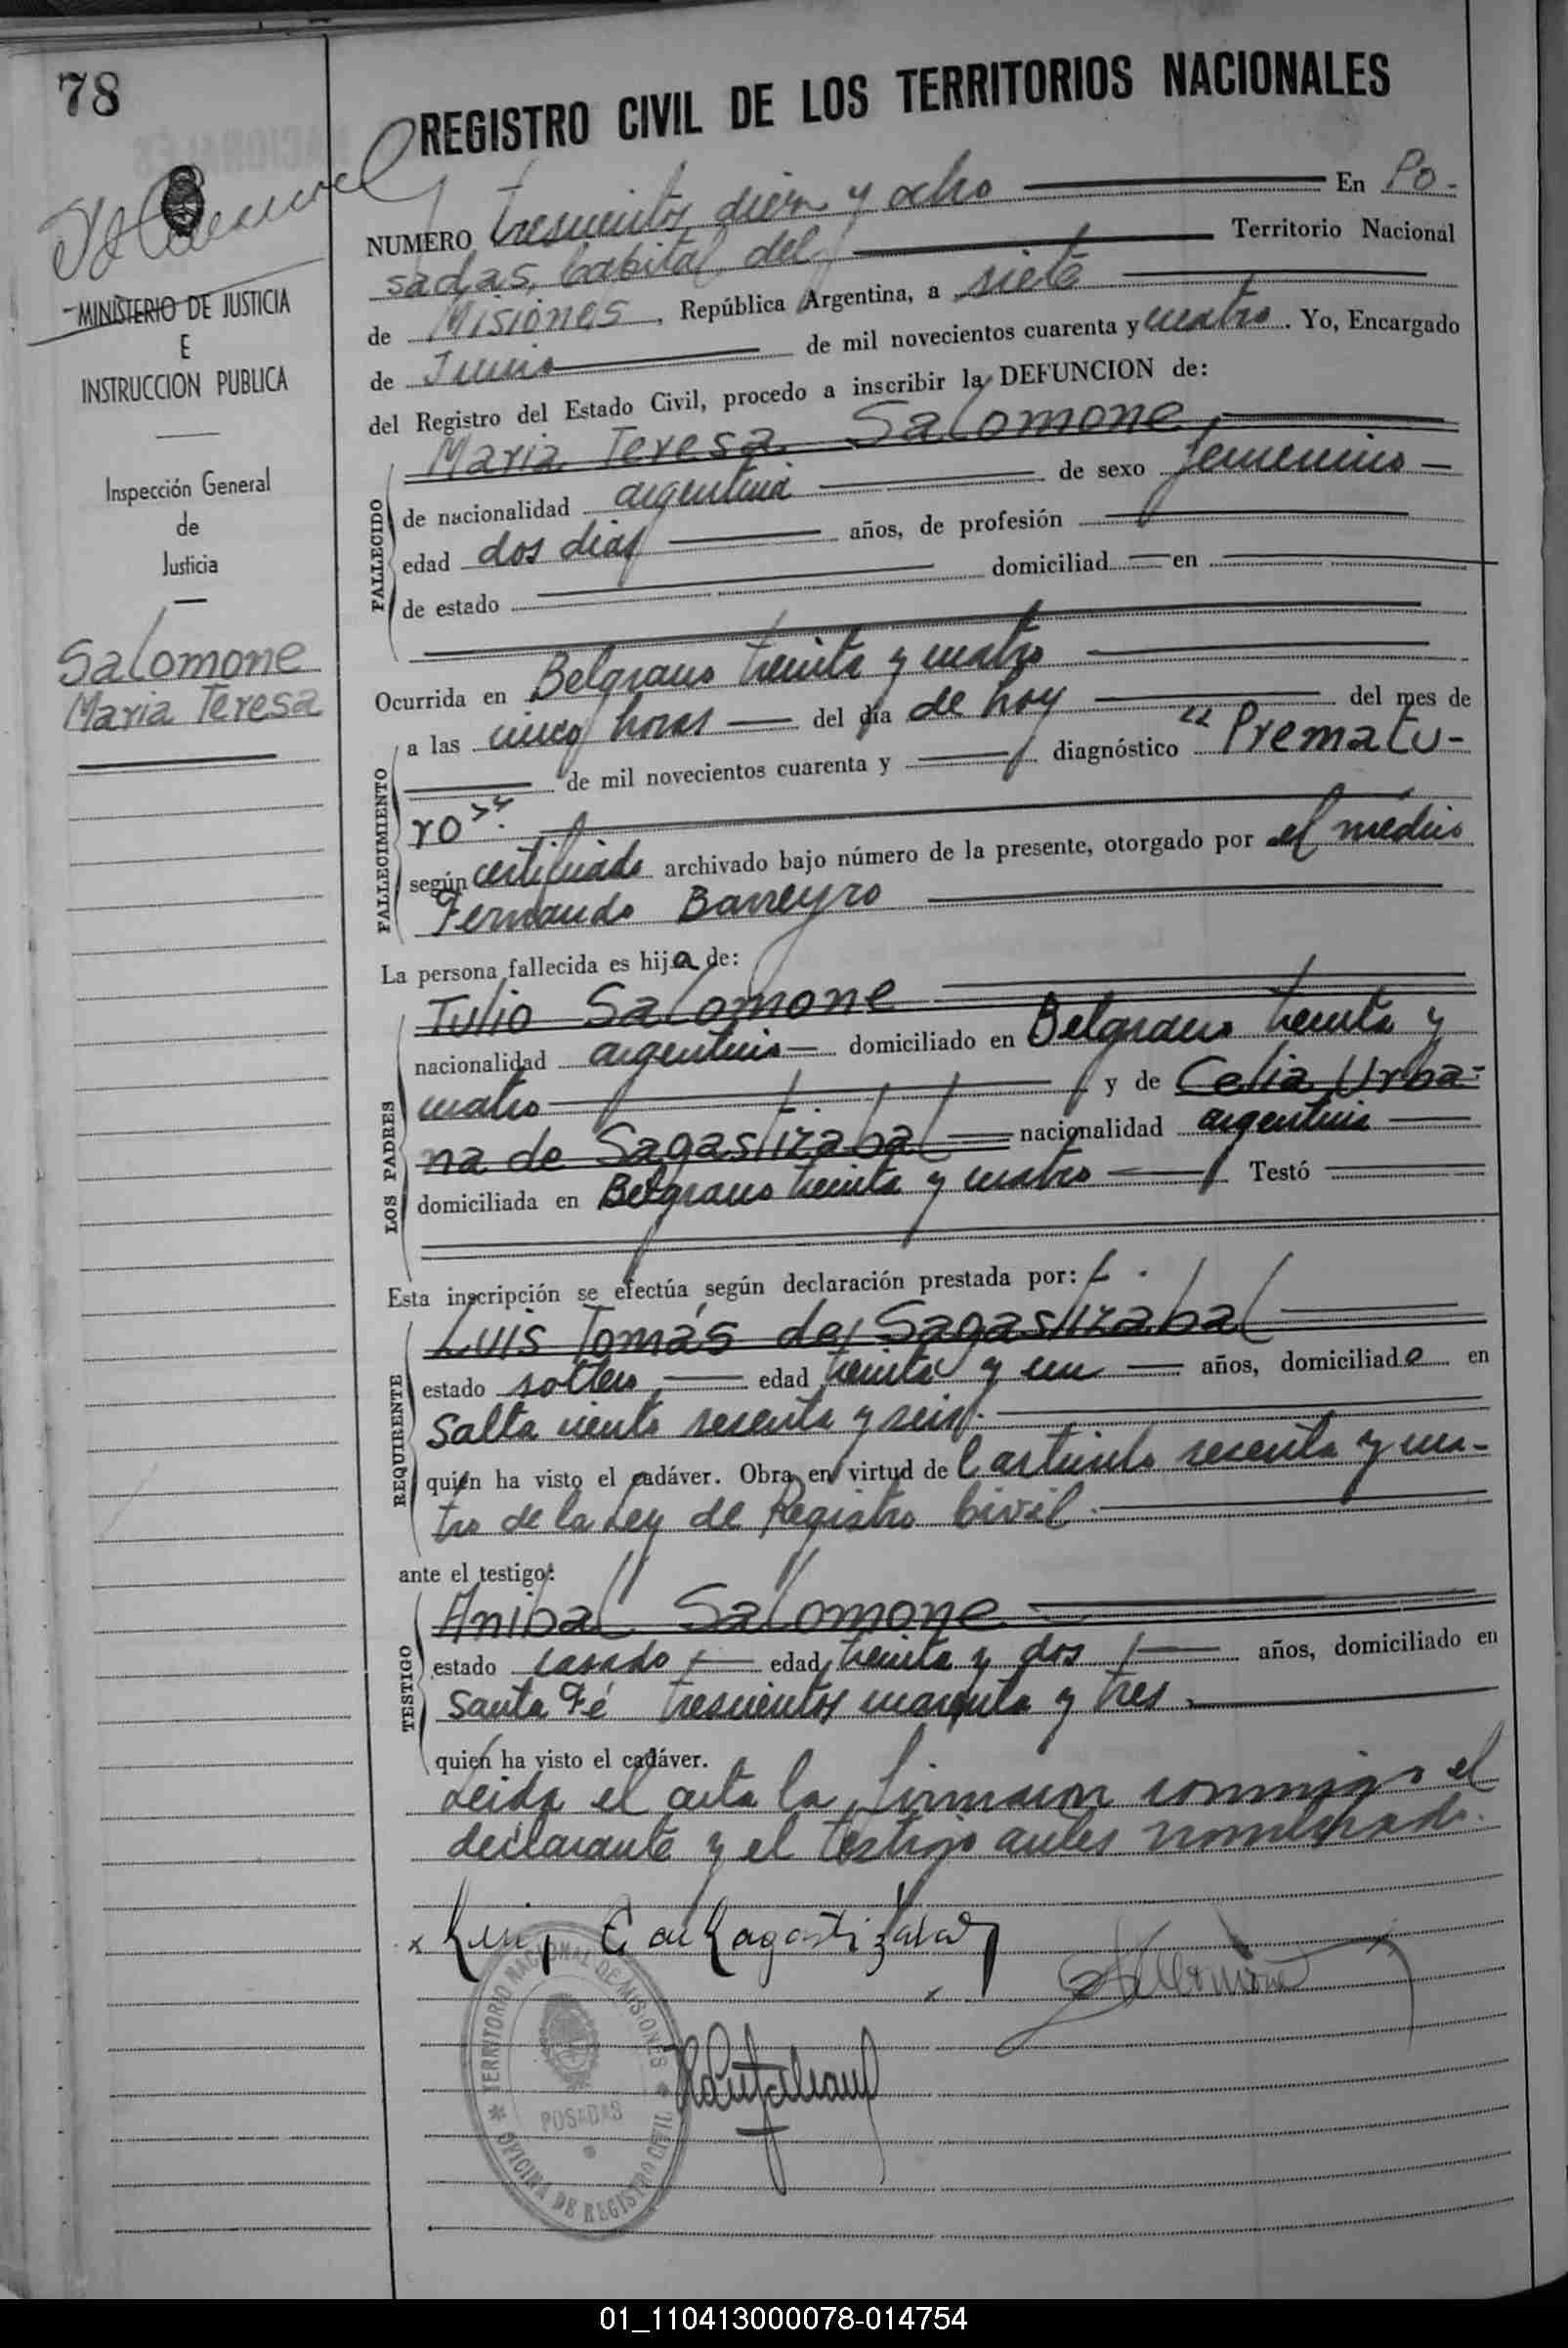 78
REGISTRO CIVIL DE LOS TERRITORIOS NACIONALES
NUMERO trescientos diez y ocho En Po-
sadas, Capital del Territorio Nacional
de Misiones, República Argentina, a siete
de Junio de mil novecientos cuarenta y cuatro. Yo, Encargado
del Registro del Estado Civil, procedo a inscribir la DEFUNCION de:
MINISTERIO DE JUSTICIA
E
INSTRUCCION PUBLICA
Inspección General
de
Justicia
Salomone
Maria Teresa
FALLECIDO
Maria Teresa Salomone
de nacionalidad argentina de sexo femenino
edad dos dias años, de profesión
de estado domiciliad en
Ocurrida en Belgrano treinta y cuatro
FALLECIMIENTO
a las cinco horas del día de hoy del mes de
de mil novecientos cuarenta y diagnóstico "Prematu-
ro".
según certificado archivado bajo número de la presente, otorgado por el médico
Fernando Barreyro
La persona fallecida es hija de:
LOS PADRES
Julio Salomone
nacionalidad argentina domiciliado en Belgrano treinta y
cuatro y de Celia Urba-
na de Sagastizabal nacionalidad argentina
domiciliada en Belgrano treinta y cuatro Testó
Esta inscripción se efectúa según declaración prestada por:
REQUIRENTE
Luis Tomás de Sagastizabal
estado soltero edad treinta y un años, domiciliado en
Salta ciento sesenta y seis.
quién ha visto el cadáver. Obra en virtud de l artículo sesenta y cua-
tro de la Ley de Registro Civil.
ante el testigo:
TESTIGO
Anibal Salomone
estado casado edad treinta y dos años, domiciliado en
Santa Fé trescientos cuarenta y tres.
quién ha visto el cadáver.
Leida el acta la firmaron conmigo el
declarante y el testigo antes nombrado.
TERRITORIO NACIONAL DE MISIONES
POSADAS
OFICINA DE REGISTRO CIVIL
01_110413000078-014754